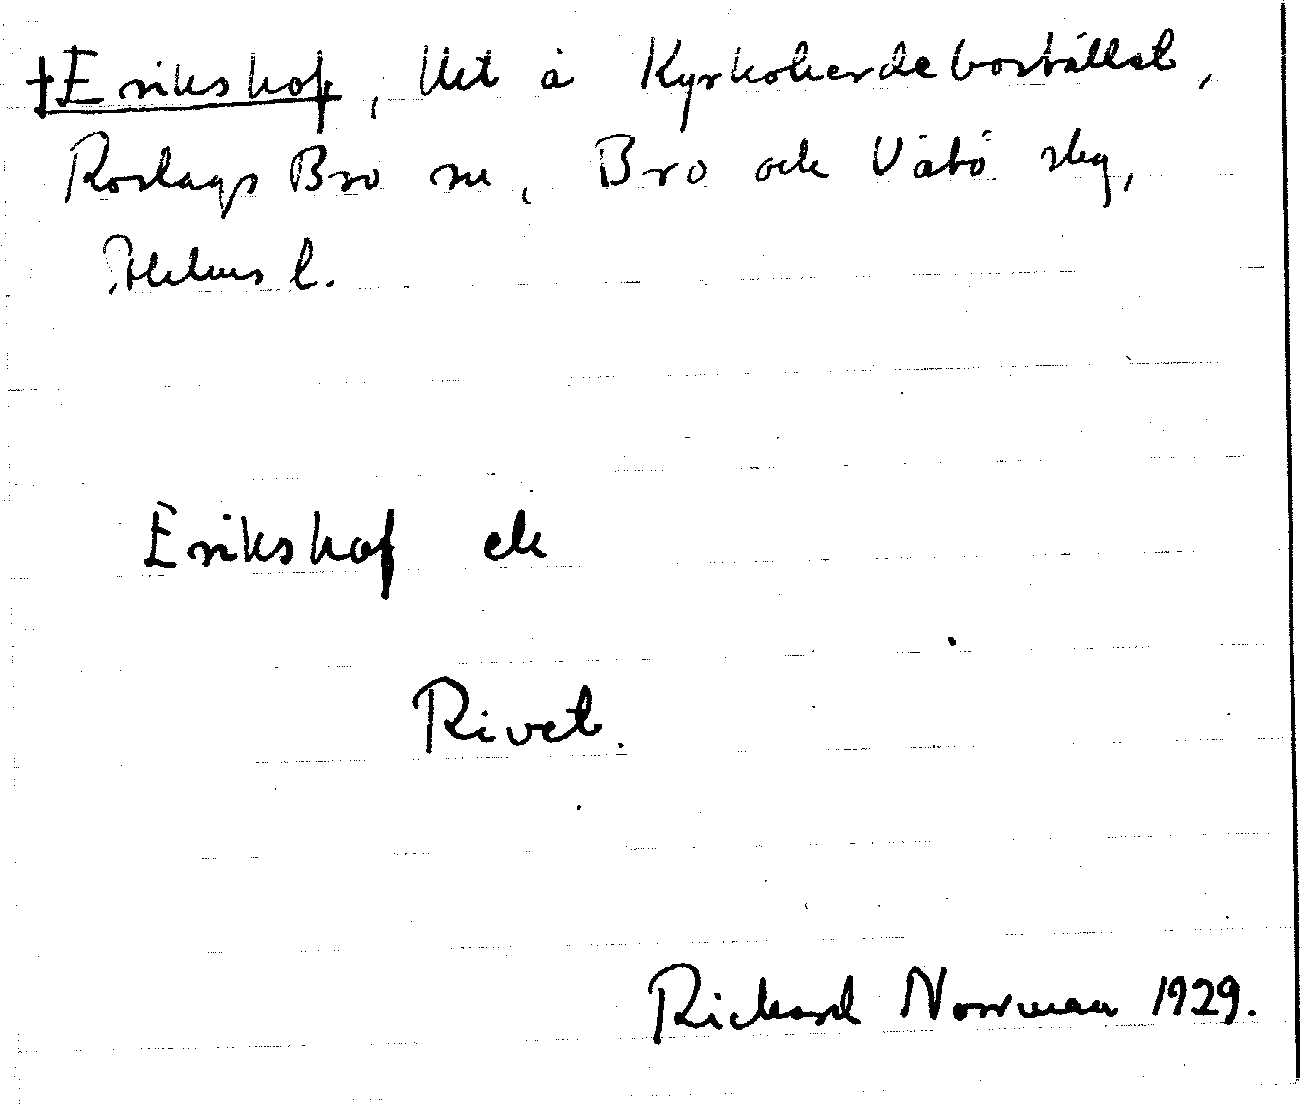 †Erikshof, lht å Kyrkoherdebostället,
Roslags Bro sn, Bro och Vätö slg,
Sthlms l.
Erikshof ek
Rivet.
Rickard Norrman 1929.